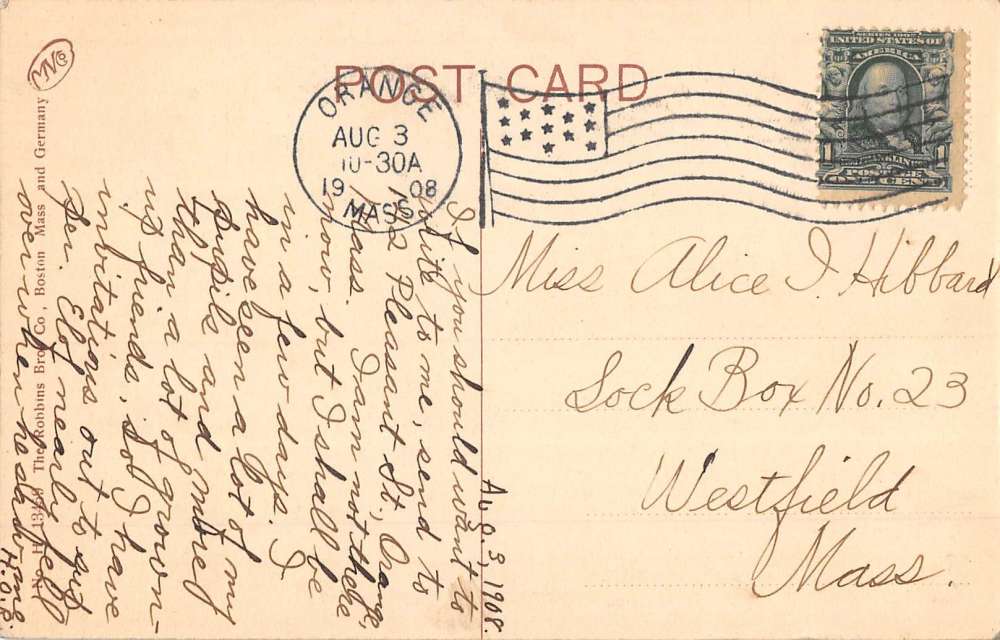 POST CARD
ORANGE
AUG 3
10-30A
19 08
MASS.
SERIES 1902
UNITED STATES OF
AMERICA
FRANKLIN
POSTAGE
1 ONE CENT 1
Miss Alice I. Hibbard
Lock Box No. 23
Westfield
Mass.
Aug. 3, 1908.
If you should want to
write to me, send to
Pleasant St., Orange,
Mass. I am not there
now, but I shall be
in a few days. I
have seen a lot of my
pupils and
than a lot of grown-
up friends. I have
invitations out to
Eloy nearly fell
over when he saw me
H.O.B.
MNCo
The Robbins Bros Co., Boston Mass and Germany